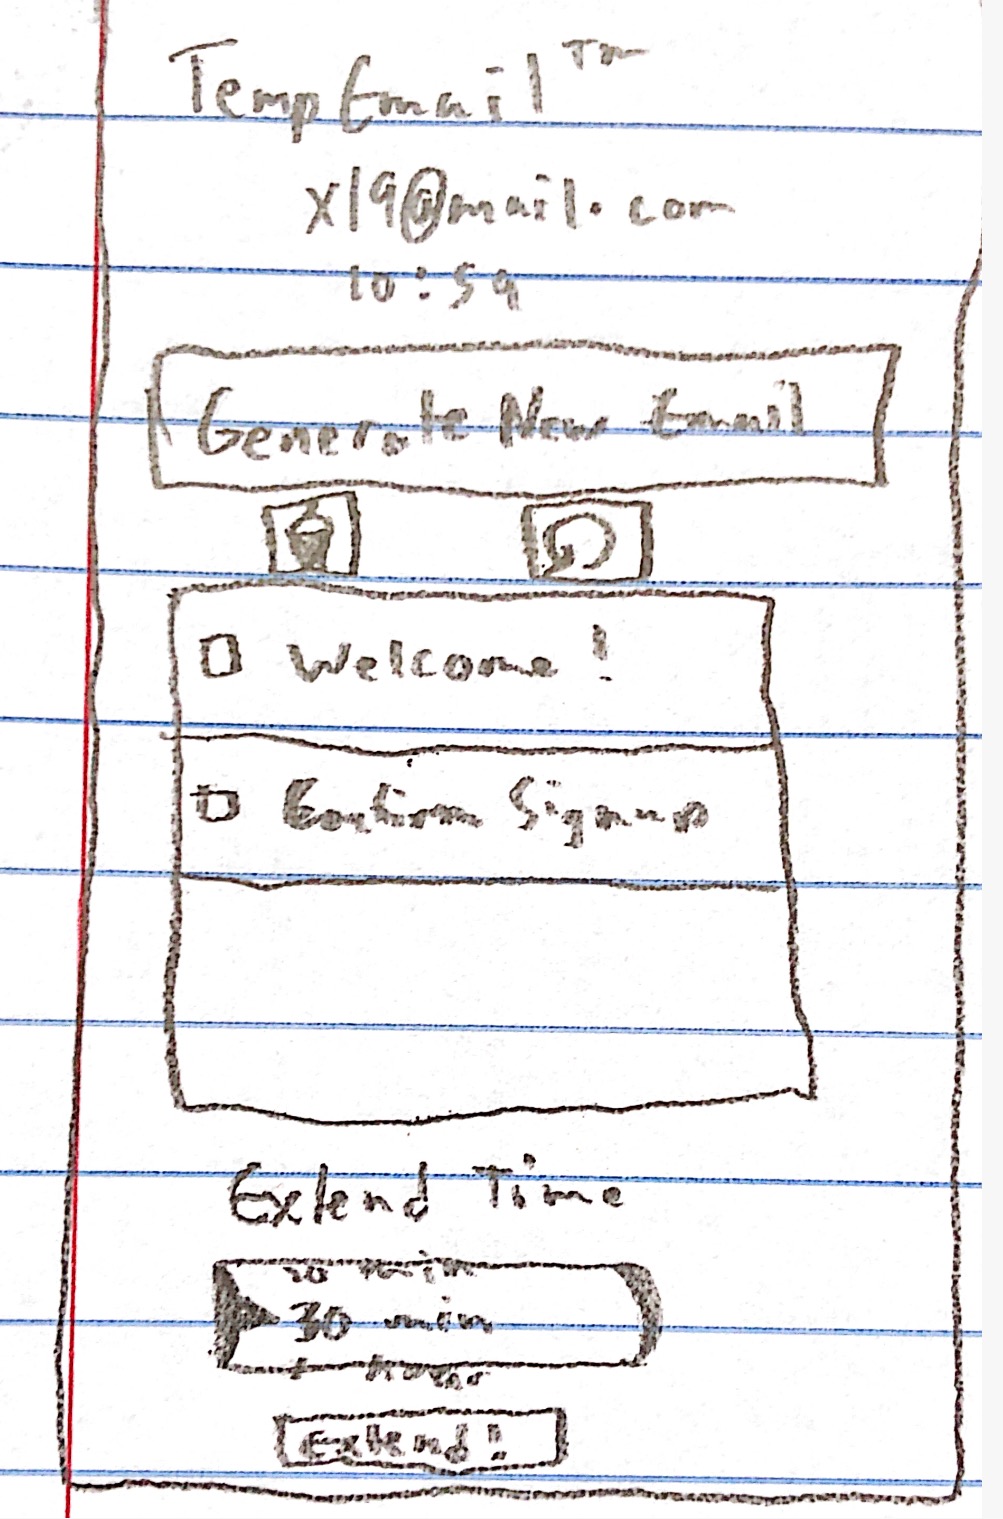 TempEmail™
x19@mail.com
10:59
Generate New Email
Welcome!
Confirm Signup
Extend Time
30 min
Extend!